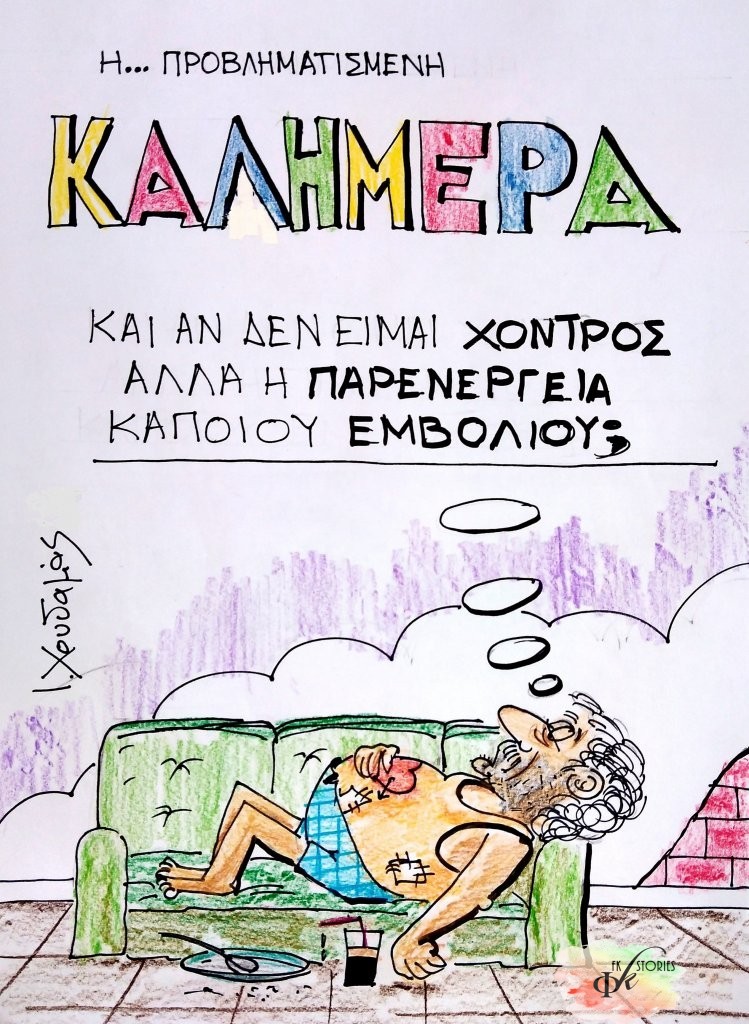 Η... ΠΡΟΒΛΗΜΑΤΙΣΜΕΝΗ
ΚΑΛΗΜΕΡΑ
ΚΑΙ ΑΝ ΔΕΝ ΕΙΜΑΙ ΧΟΝΤΡΟΣ
ΑΛΛΑ Η ΠΑΡΕΝΕΡΓΕΙΑ
ΚΑΠΟΙΟΥ ΕΜΒΟΛΙΟΥ;
Ι. Χουδαμάς
FK STORIES